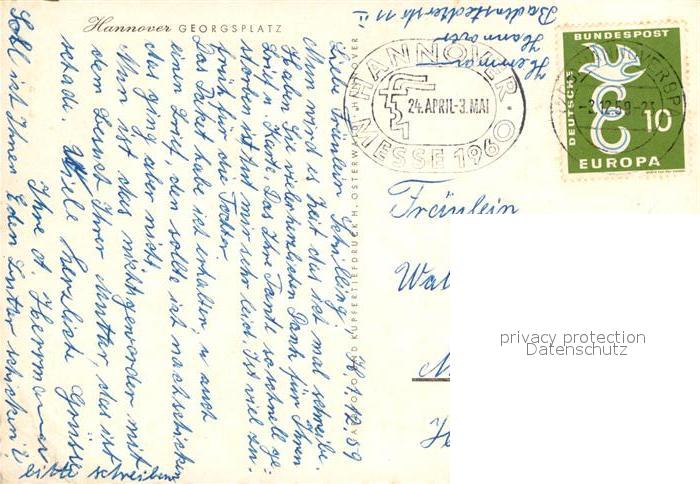 Hannover GEORGSPLATZ
Hannover
Badenstedterstr 11
HANNOVER
24. APRIL-3. MAI
MESSE 1960
-2.12.59.-
DEUTSCHE BUNDESPOST
10
EUROPA
KUPFERTIEFDRUCK H. OSTERWALD, HANNOVER
Fräulein
privacy protection
Datenschutz
1.12.59
Liebe Fräulein Schilling!
Nun wird es Zeit das ich mal schreibe.
Haben Sie vielen herzlichen Dank für Ihren
Brief u Karte. Das Ihre Tante so schnell ge-
storben ist tut mir sehr leid. Ist viel zu
früh für die Tochter.
Das Paket habe ich erhalten, u auch
einen Brief, den sollte ich nachschicken
das ging aber nicht.
Nun ist das nicht geworden mit
dem Besuch Ihrer Mutter, das ist
schade. Viele herzliche Grüsse
Ihre A. Herrmann
Soll ich Ihnen
bitte schreiben